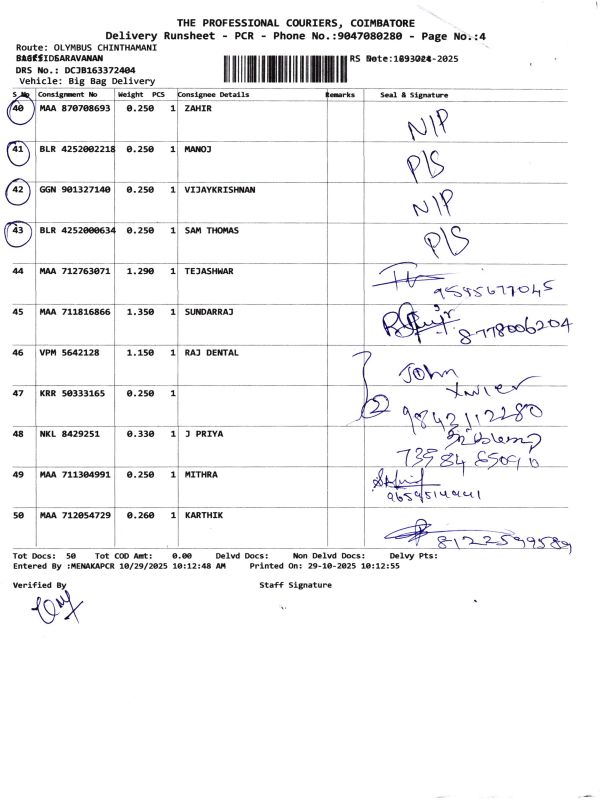 THE PROFESSIONAL COURIERS, COIMBATORE
Delivery Runsheet - PCR - Phone No.:9047080280 - Page No.:4
Route: OLYMBUS CHINTHAMANI
SARAVANAN
RS Date: -2025
DRS No.: DCJB163372404
Vehicle: Big Bag Delivery
S_No Consignment No Weight PCS Consignee Details Remarks Seal & Signature
40 MAA 870708693 0.250 1 ZAHIR N/P
41 BLR 4252002218 0.250 1 MANOJ P/S
42 GGN 901327140 0.250 1 VIJAYKRISHNAN N/P
43 BLR 4252000634 0.250 1 SAM THOMAS P/S
44 MAA 712763071 1.290 1 TEJASHWAR
9595677045
45 MAA 711816866 1.350 1 SUNDARRAJ 8778006204
46 VPM 5642128 1.150 1 RAJ DENTAL John
Xavier
47 KRR 50333165 0.250 1 2 9843112280
48 NKL 8429251 0.330 1 J PRIYA
49 MAA 711304991 0.250 1 MITHRA
50 MAA 712054729 0.260 1 KARTHIK 8122599589
Tot Docs: 50 Tot COD Amt: 0.00 Delvd Docs: Non Delvd Docs: Delvy Pts:
Entered By :MENAKAPCR 10/29/2025 10:12:48 AM Printed On: 29-10-2025 10:12:55
Verified By Staff Signature